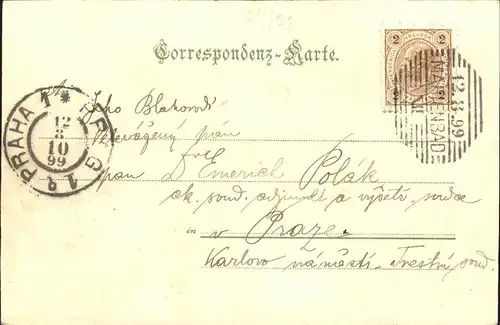 Correspondenz-Karte.
2 2
2 2
MARIENBAD
12.8.99
PRAHA 1 * PRAG 1
12
8
10
99
Jeho Blahorodí
Velevážený pán
pan Dr Emerich Polák
ck. soud. adjunkt a vyšetř. soudce
in v Praze
Karlovo náměstí - Trestní soud.